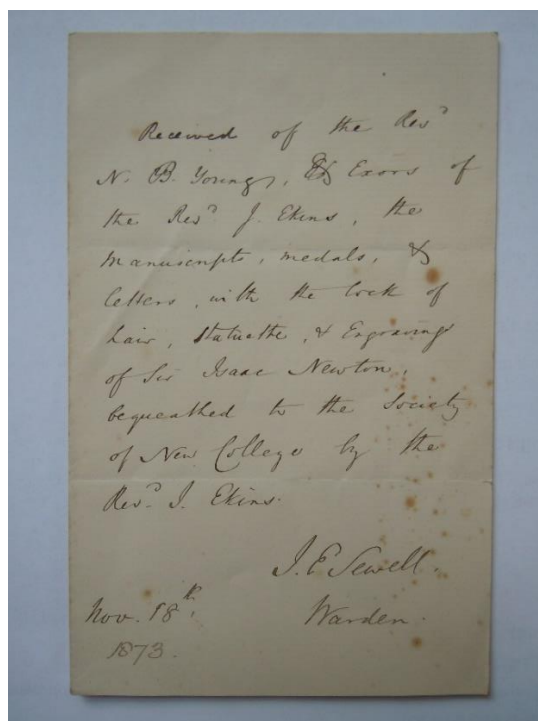 Received of the Revd
N. B. Young, & Exors of
the Revd. J. Ekins, the
Manuscripts, medals, &
letters, with the lock of
hair, statuette, & Engraving
of Sir Isaac Newton,
bequeathed to the Society
of New College by the
Revd. J. Ekins.
J. E. Sewell.
Nov. 18th. Warden.
1873.